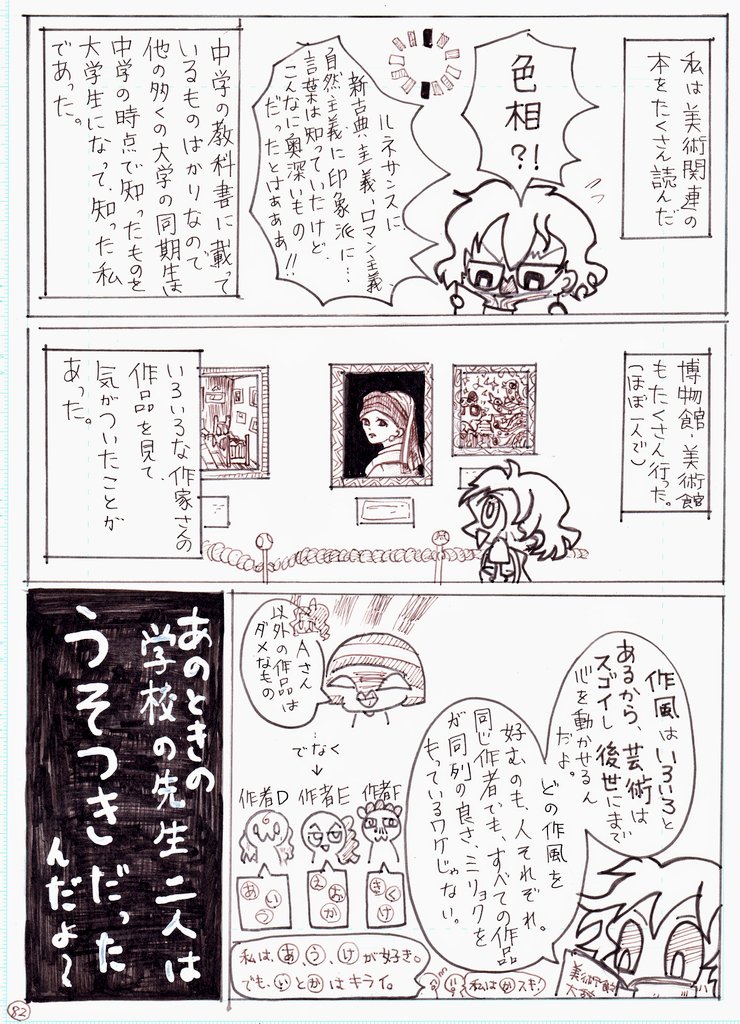 私は美術関連の
本をたくさん読んだ
色相?!
ルネサンスに
新古典主義、ロマン主義
自然主義に印象派に…
言葉は知っていたけど、
こんなに奥深いもの
だったとはぁぁぁ!!
中学の教科書に載って
いるものばかりなので
他の多くの大学の同期生は
中学の時点で知ったものを
大学生になって、知った私
であった。
博物館・美術館
もたくさん行った。
(ほぼ一人で)
いろいろな作家さんの
作品を見て、
気がついたことが
あった。
作風はいろいろと
あるから、芸術は
スゴイし後世にまで
心を動かせるん
だよ。
どの作風を
好むのも、人それぞれ。
同じ作者でも、すべての作品
が同列の良さ、ミリョクを
もっているワケじゃない。
美術館
大好き
Aさん
以外の作品は
ダメなもの
でなく
↓
作者D
作者E
作者F
あいう
えおか
きくけ
私は、あ、う、けが好き。
でも、いとかはキライ。
私はかスキ!
あのときの
学校の先生二人は
うそつきだった
んだよ〜
82